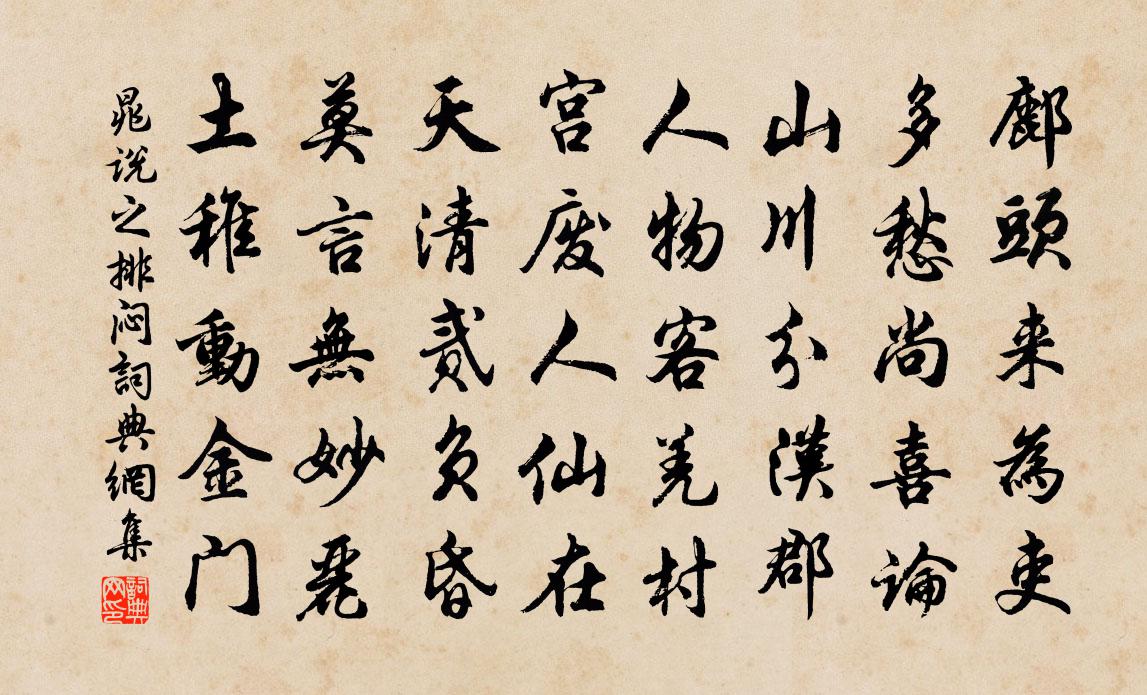 鄜頭来為吏
多愁尚喜論
山川分漢郡
人物客羌村
宫廢人仙在
天清貳負昏
莫言無妙麗
土稚動金门
晁说之排闷詞典網集
詞典網印